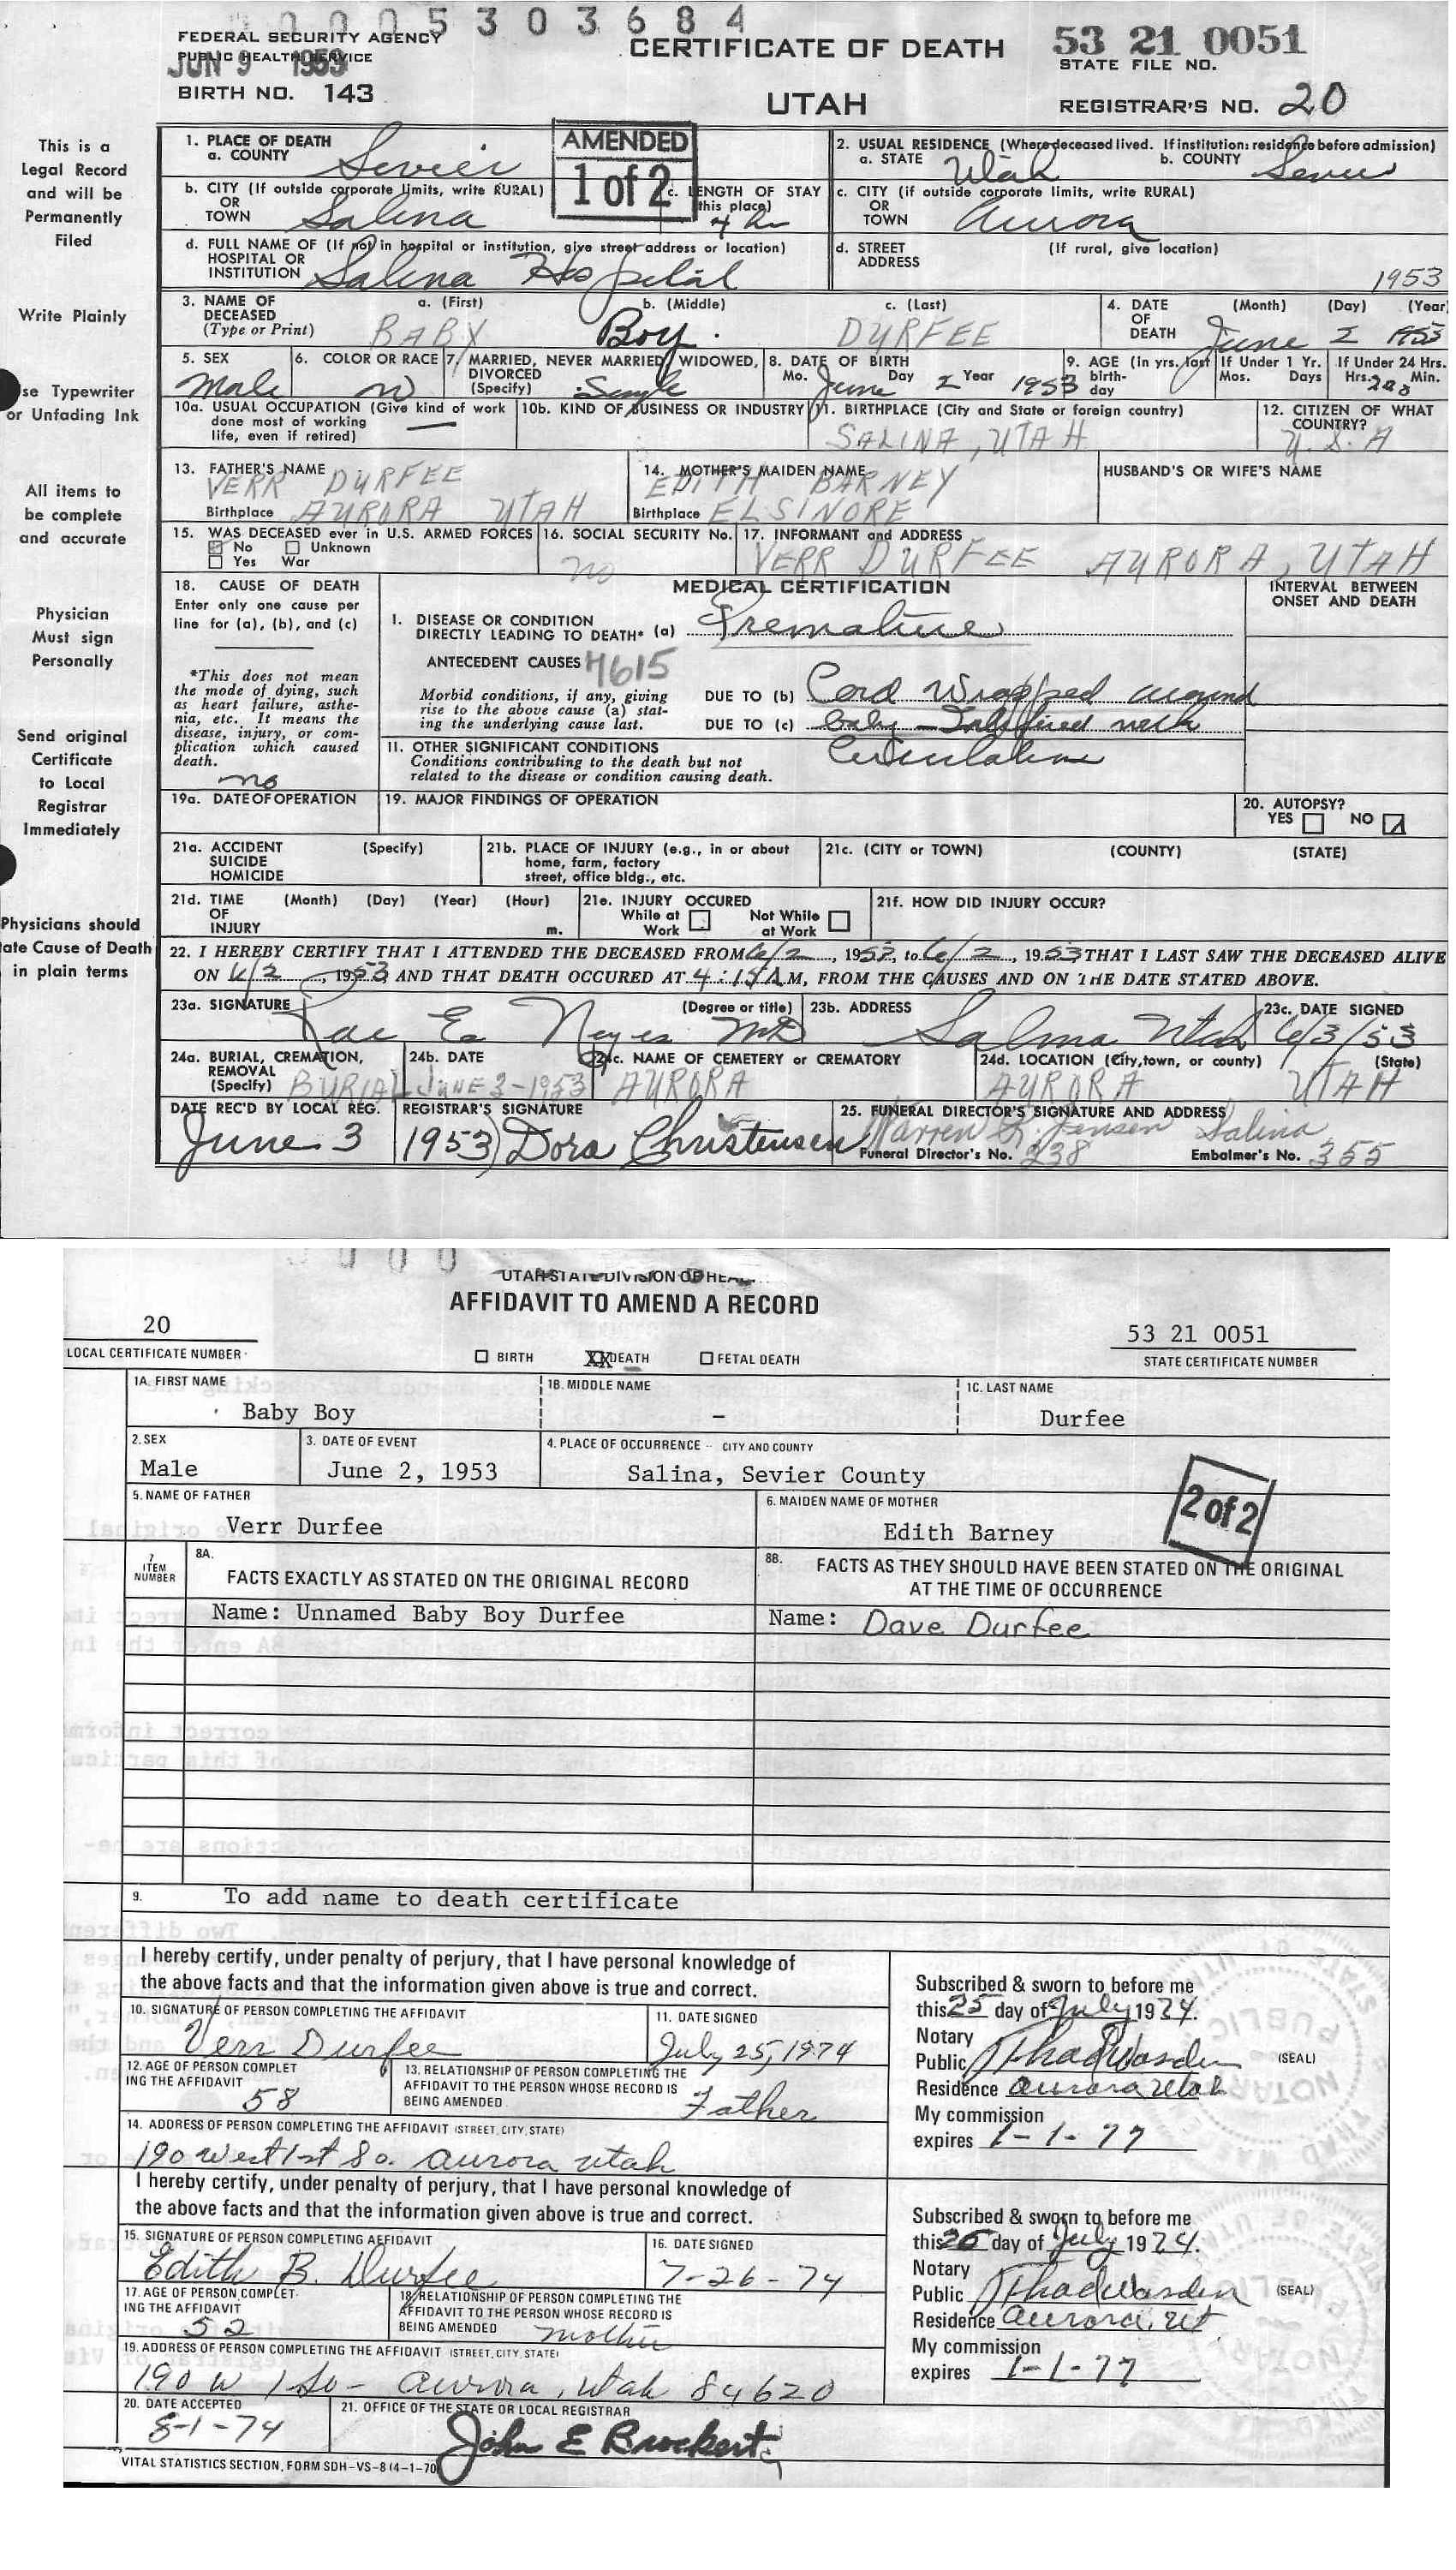 0005303684
FEDERAL SECURITY AGENCY
PUBLIC HEALTH SERVICE
JUN 9 1953
BIRTH NO. 143
CERTIFICATE OF DEATH
UTAH
53 21 0051
STATE FILE NO.
REGISTRAR'S NO. 20
This is a
Legal Record
and will be
Permanently
Filed
Write Plainly
se Typewriter
or Unfading Ink
All items to
be complete
and accurate
Physician
Must sign
Personally
Send original
Certificate
to Local
Registrar
Immediately
Physicians should
tate Cause of Death
in plain terms
AMENDED
1 of 2
1. PLACE OF DEATH
a. COUNTY Sevier
2. USUAL RESIDENCE (Where deceased lived. If institution: residence before admission)
a. STATE Utah b. COUNTY Sevier
b. CITY (If outside corporate limits, write RURAL)
OR
TOWN Salina
c. LENGTH OF STAY
this place)
c. CITY (if outside corporate limits, write RURAL)
OR
TOWN Aurora
d. FULL NAME OF (If not in hospital or institution, give street address or location)
HOSPITAL OR
INSTITUTION Salina Hospital
d. STREET (If rural, give location)
ADDRESS
1953
3. NAME OF DECEASED (Type or Print)
a. (First) BABY b. (Middle) Boy c. (Last) DURFEE
4. DATE OF DEATH (Month) (Day) (Year
June 2 1953
5. SEX Male
6. COLOR OR RACE W
7. MARRIED, NEVER MARRIED, WIDOWED, DIVORCED (Specify) Single
8. DATE OF BIRTH
Mo. June Day 2 Year 1953
9. AGE (in yrs. last birth-day
If Under 1 Yr. Mos. Days
If Under 24 Hrs. Hrs. Min.
10a. USUAL OCCUPATION (Give kind of work done most of working life, even if retired)
10b. KIND OF BUSINESS OR INDUSTRY
11. BIRTHPLACE (City and State or foreign country)
SALINA, UTAH
12. CITIZEN OF WHAT COUNTRY?
U.S.A
13. FATHER'S NAME
VERR DURFEE
Birthplace AURORA UTAH
14. MOTHER'S MAIDEN NAME
EDITH BARNEY
Birthplace ELSINORE
HUSBAND'S OR WIFE'S NAME
15. WAS DECEASED ever in U.S. ARMED FORCES
No Unknown
Yes War
16. SOCIAL SECURITY No.
no
17. INFORMANT and ADDRESS
VERR DURFEE AURORA, UTAH
18. CAUSE OF DEATH
Enter only one cause per
line for (a), (b), and (c)
*This does not mean
the mode of dying, such
as heart failure, asthe-
nia, etc. It means the
disease, injury, or com-
plication which caused
death.
no
MEDICAL CERTIFICATION
INTERVAL BETWEEN
ONSET AND DEATH
I. DISEASE OR CONDITION
DIRECTLY LEADING TO DEATH* (a) Premature
ANTECEDENT CAUSES
Morbid conditions, if any, giving
rise to the above cause (a) stat-
ing the underlying cause last.
7615
DUE TO (b) Cord wrapped around
DUE TO (c) baby - Interfered with
circulation
11. OTHER SIGNIFICANT CONDITIONS
Conditions contributing to the death but not
related to the disease or condition causing death.
19a. DATE OF OPERATION
19. MAJOR FINDINGS OF OPERATION
20. AUTOPSY?
YES NO
21a. ACCIDENT (Specify)
SUICIDE
HOMICIDE
21b. PLACE OF INJURY (e.g., in or about
home, farm, factory
street, office bldg., etc.
21c. (CITY or TOWN) (COUNTY) (STATE)
21d. TIME (Month) (Day) (Year) (Hour)
OF
INJURY m.
21e. INJURY OCCURED
While at Work Not While at Work
21f. HOW DID INJURY OCCUR?
22. I HEREBY CERTIFY THAT I ATTENDED THE DECEASED FROM 6/2, 1953, to 6/2, 1953 THAT I LAST SAW THE DECEASED ALIVE
ON 6/2, 1953 AND THAT DEATH OCCURED AT 4:15 A M, FROM THE CAUSES AND ON THE DATE STATED ABOVE.
23a. SIGNATURE (Degree or title)
Rae E. Noyes MD
23b. ADDRESS
Salina Utah
23c. DATE SIGNED
6/3/53
24a. BURIAL, CREMATION, REMOVAL (Specify) BURIAL
24b. DATE JUNE 3-1953
24c. NAME OF CEMETERY or CREMATORY
AURORA
24d. LOCATION (City, town, or county) (State)
AURORA UTAH
DATE REC'D BY LOCAL REG.
June 3 1953
REGISTRAR'S SIGNATURE
Dora Christensen
25. FUNERAL DIRECTOR'S SIGNATURE AND ADDRESS
Warren Jensen Salina
Funeral Director's No. 238 Embalmer's No. 355
UTAH STATE DIVISION OF HEAL
AFFIDAVIT TO AMEND A RECORD
20
LOCAL CERTIFICATE NUMBER
BIRTH XX DEATH FETAL DEATH
53 21 0051
STATE CERTIFICATE NUMBER
1A. FIRST NAME
Baby Boy
1B. MIDDLE NAME
-
1C. LAST NAME
Durfee
2. SEX
Male
3. DATE OF EVENT
June 2, 1953
4. PLACE OF OCCURRENCE - CITY AND COUNTY
Salina, Sevier County
2 of 2
5. NAME OF FATHER
Verr Durfee
6. MAIDEN NAME OF MOTHER
Edith Barney
7 ITEM NUMBER
8A.
FACTS EXACTLY AS STATED ON THE ORIGINAL RECORD
8B. FACTS AS THEY SHOULD HAVE BEEN STATED ON THE ORIGINAL
AT THE TIME OF OCCURRENCE
Name: Unnamed Baby Boy Durfee
Name: Dave Durfee
9. To add name to death certificate
I hereby certify, under penalty of perjury, that I have personal knowledge of
the above facts and that the information given above is true and correct.
10. SIGNATURE OF PERSON COMPLETING THE AFFIDAVIT
Verr Durfee
11. DATE SIGNED
July 25, 1974
12. AGE OF PERSON COMPLET
ING THE AFFIDAVIT
58
13. RELATIONSHIP OF PERSON COMPLETING THE
AFFIDAVIT TO THE PERSON WHOSE RECORD IS
BEING AMENDED Father
14. ADDRESS OF PERSON COMPLETING THE AFFIDAVIT (STREET, CITY, STATE)
190 West 1st So. Aurora Utah
Subscribed & sworn to before me
this 25 day of July 1974.
Notary
Public Thad Wasden (SEAL)
Residence Aurora Utah
My commission
expires 1-1-77
I hereby certify, under penalty of perjury, that I have personal knowledge of
the above facts and that the information given above is true and correct.
15. SIGNATURE OF PERSON COMPLETING AFFIDAVIT
Edith B. Durfee
16. DATE SIGNED
7-26-74
17. AGE OF PERSON COMPLET-
ING THE AFFIDAVIT
52
18. RELATIONSHIP OF PERSON COMPLETING THE
AFFIDAVIT TO THE PERSON WHOSE RECORD IS
BEING AMENDED mother
19. ADDRESS OF PERSON COMPLETING THE AFFIDAVIT (STREET, CITY, STATE)
190 W 1 So - Aurora, Utah 84620
Subscribed & sworn to before me
this 26 day of July 1974.
Notary
Public Thad Wasden (SEAL)
Residence Aurora, Ut
My commission
expires 1-1-77
20. DATE ACCEPTED
8-1-74
21. OFFICE OF THE STATE OR LOCAL REGISTRAR
John E Brockert
VITAL STATISTICS SECTION, FORM SDH-VS-8 (4-1-70)